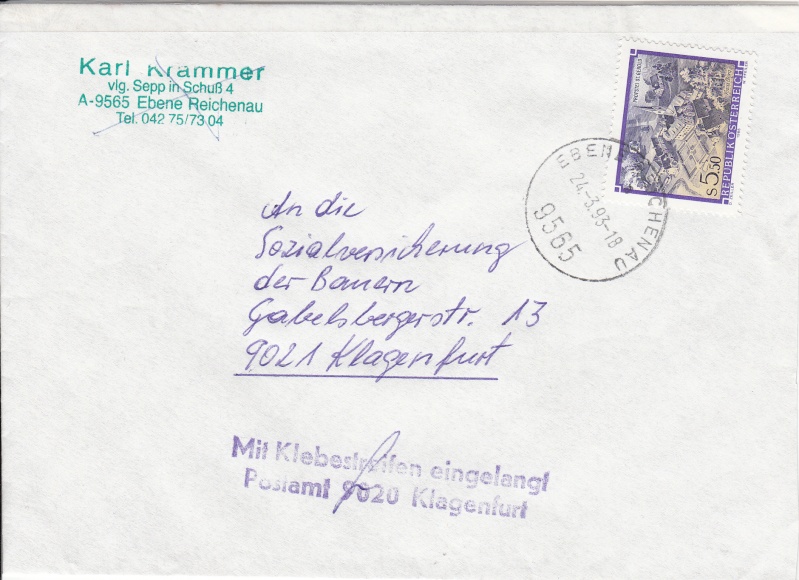 Karl Krammer
vlg. Sepp in Schuß 4
A-9565 Ebene Reichenau
Tel. 042 75/73 04
REPUBLIK ÖSTERREICH
S 5.50
EBENE REICHENAU
24.-3.93-18
9565
An die
Sozialversicherung
der Bauern
Gabelsbergerstr. 13
9021 Klagenfurt
Mit Klebestreifen eingelangt
Postamt 9020 Klagenfurt